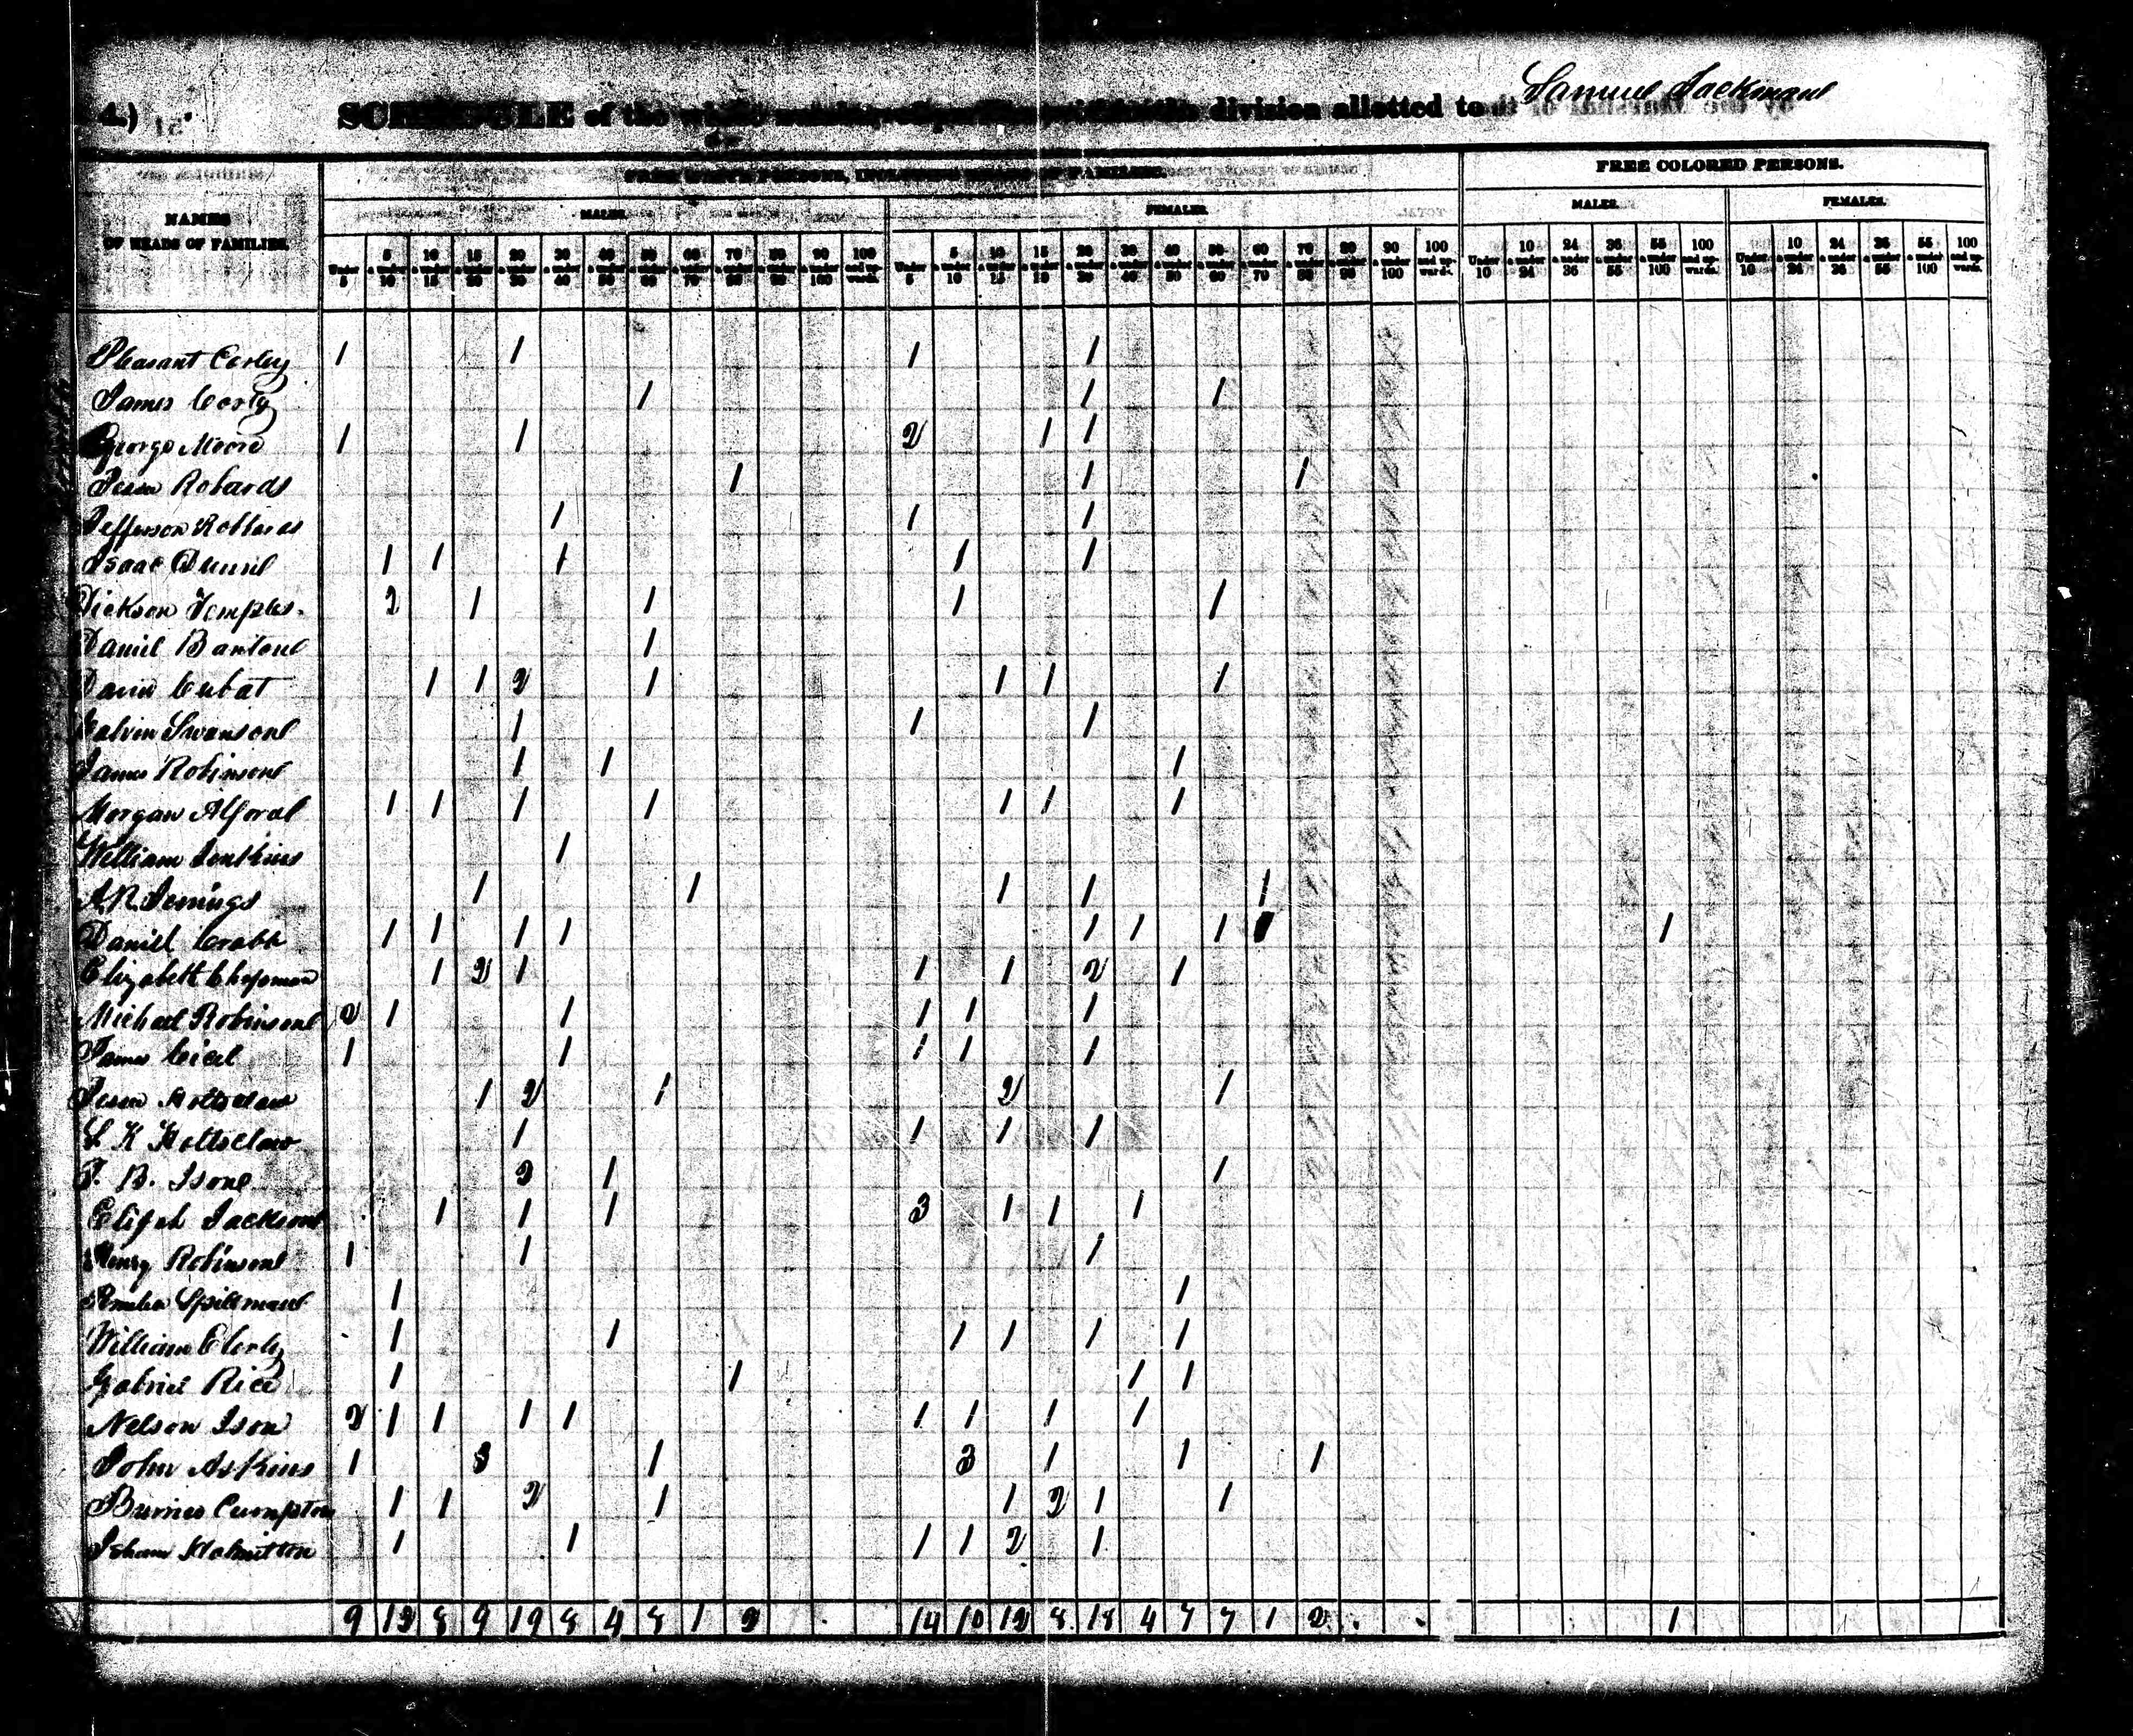 4.)
SCHEDULE of the whole number of persons within the division allotted to Samuel Jackman
FREE WHITE PERSONS, INCLUDING HEADS OF FAMILIES. FREE COLORED PERSONS.
NAMES OF HEADS OF FAMILIES. MALES. FEMALES. MALES. FEMALES.
Under 5 5 & under 10 10 & under 15 15 & under 20 20 & under 30 30 & under 40 40 & under 50 50 & under 60 60 & under 70 70 & under 80 80 & under 90 90 & under 100 100 and upwards. Under 5 5 & under 10 10 & under 15 15 & under 20 20 & under 30 30 & under 40 40 & under 50 50 & under 60 60 & under 70 70 & under 80 80 & under 90 90 & under 100 100 and upwards. Under 10 10 & under 24 24 & under 36 36 & under 55 55 & under 100 100 and upwards. Under 10 10 & under 24 24 & under 36 36 & under 55 55 & under 100 100 and upwards.
Pleasant Corley 1 1 1 1
James Corley 1 1 1
George Moore 1 1 2 1 1
Jesse Robards 1 1 1
Jefferson Robards 1 1 1
Isaac 1 1 1 1 1
Dickson Temples 2 1 1 1 1
Daniel 1
David 1 1 2 1 1 1 1
Galvin Swanson 1 1 1
James Robinson 1 1 1
Morgan Alford 1 1 1 1 1 1 1
William Jenkins 1
Jenings 1 1 1 1 1
Daniel Crabb 1 1 1 1 1 1 1 1
Elizabeth Chapman 1 2 1 1 1 2 1
Michael Robinson 2 1 1 1 1 1
James 1 1 1 1 1
Jesse Holtsclaw 1 2 1 2 1
K Holtsclaw 1 1 1 1
B. Ison 2 1 1
Elijah Jackson 1 1 1 3 1 1 1
Henry Robinson 1 1 1
Spillman 1 1
William 1 1 1 1 1 1
Gabriel Rice 1 1 1 1
Nelson Ison 2 1 1 1 1 1 1 1 1
John Askins 1 3 1 3 1 1 1
Cumpton 1 1 2 1 1 2 1 1
Isham 1 1 1 1 2 1
9 13 8 9 19 8 4 8 1 2 14 10 12 8 18 4 7 7 1 2 1